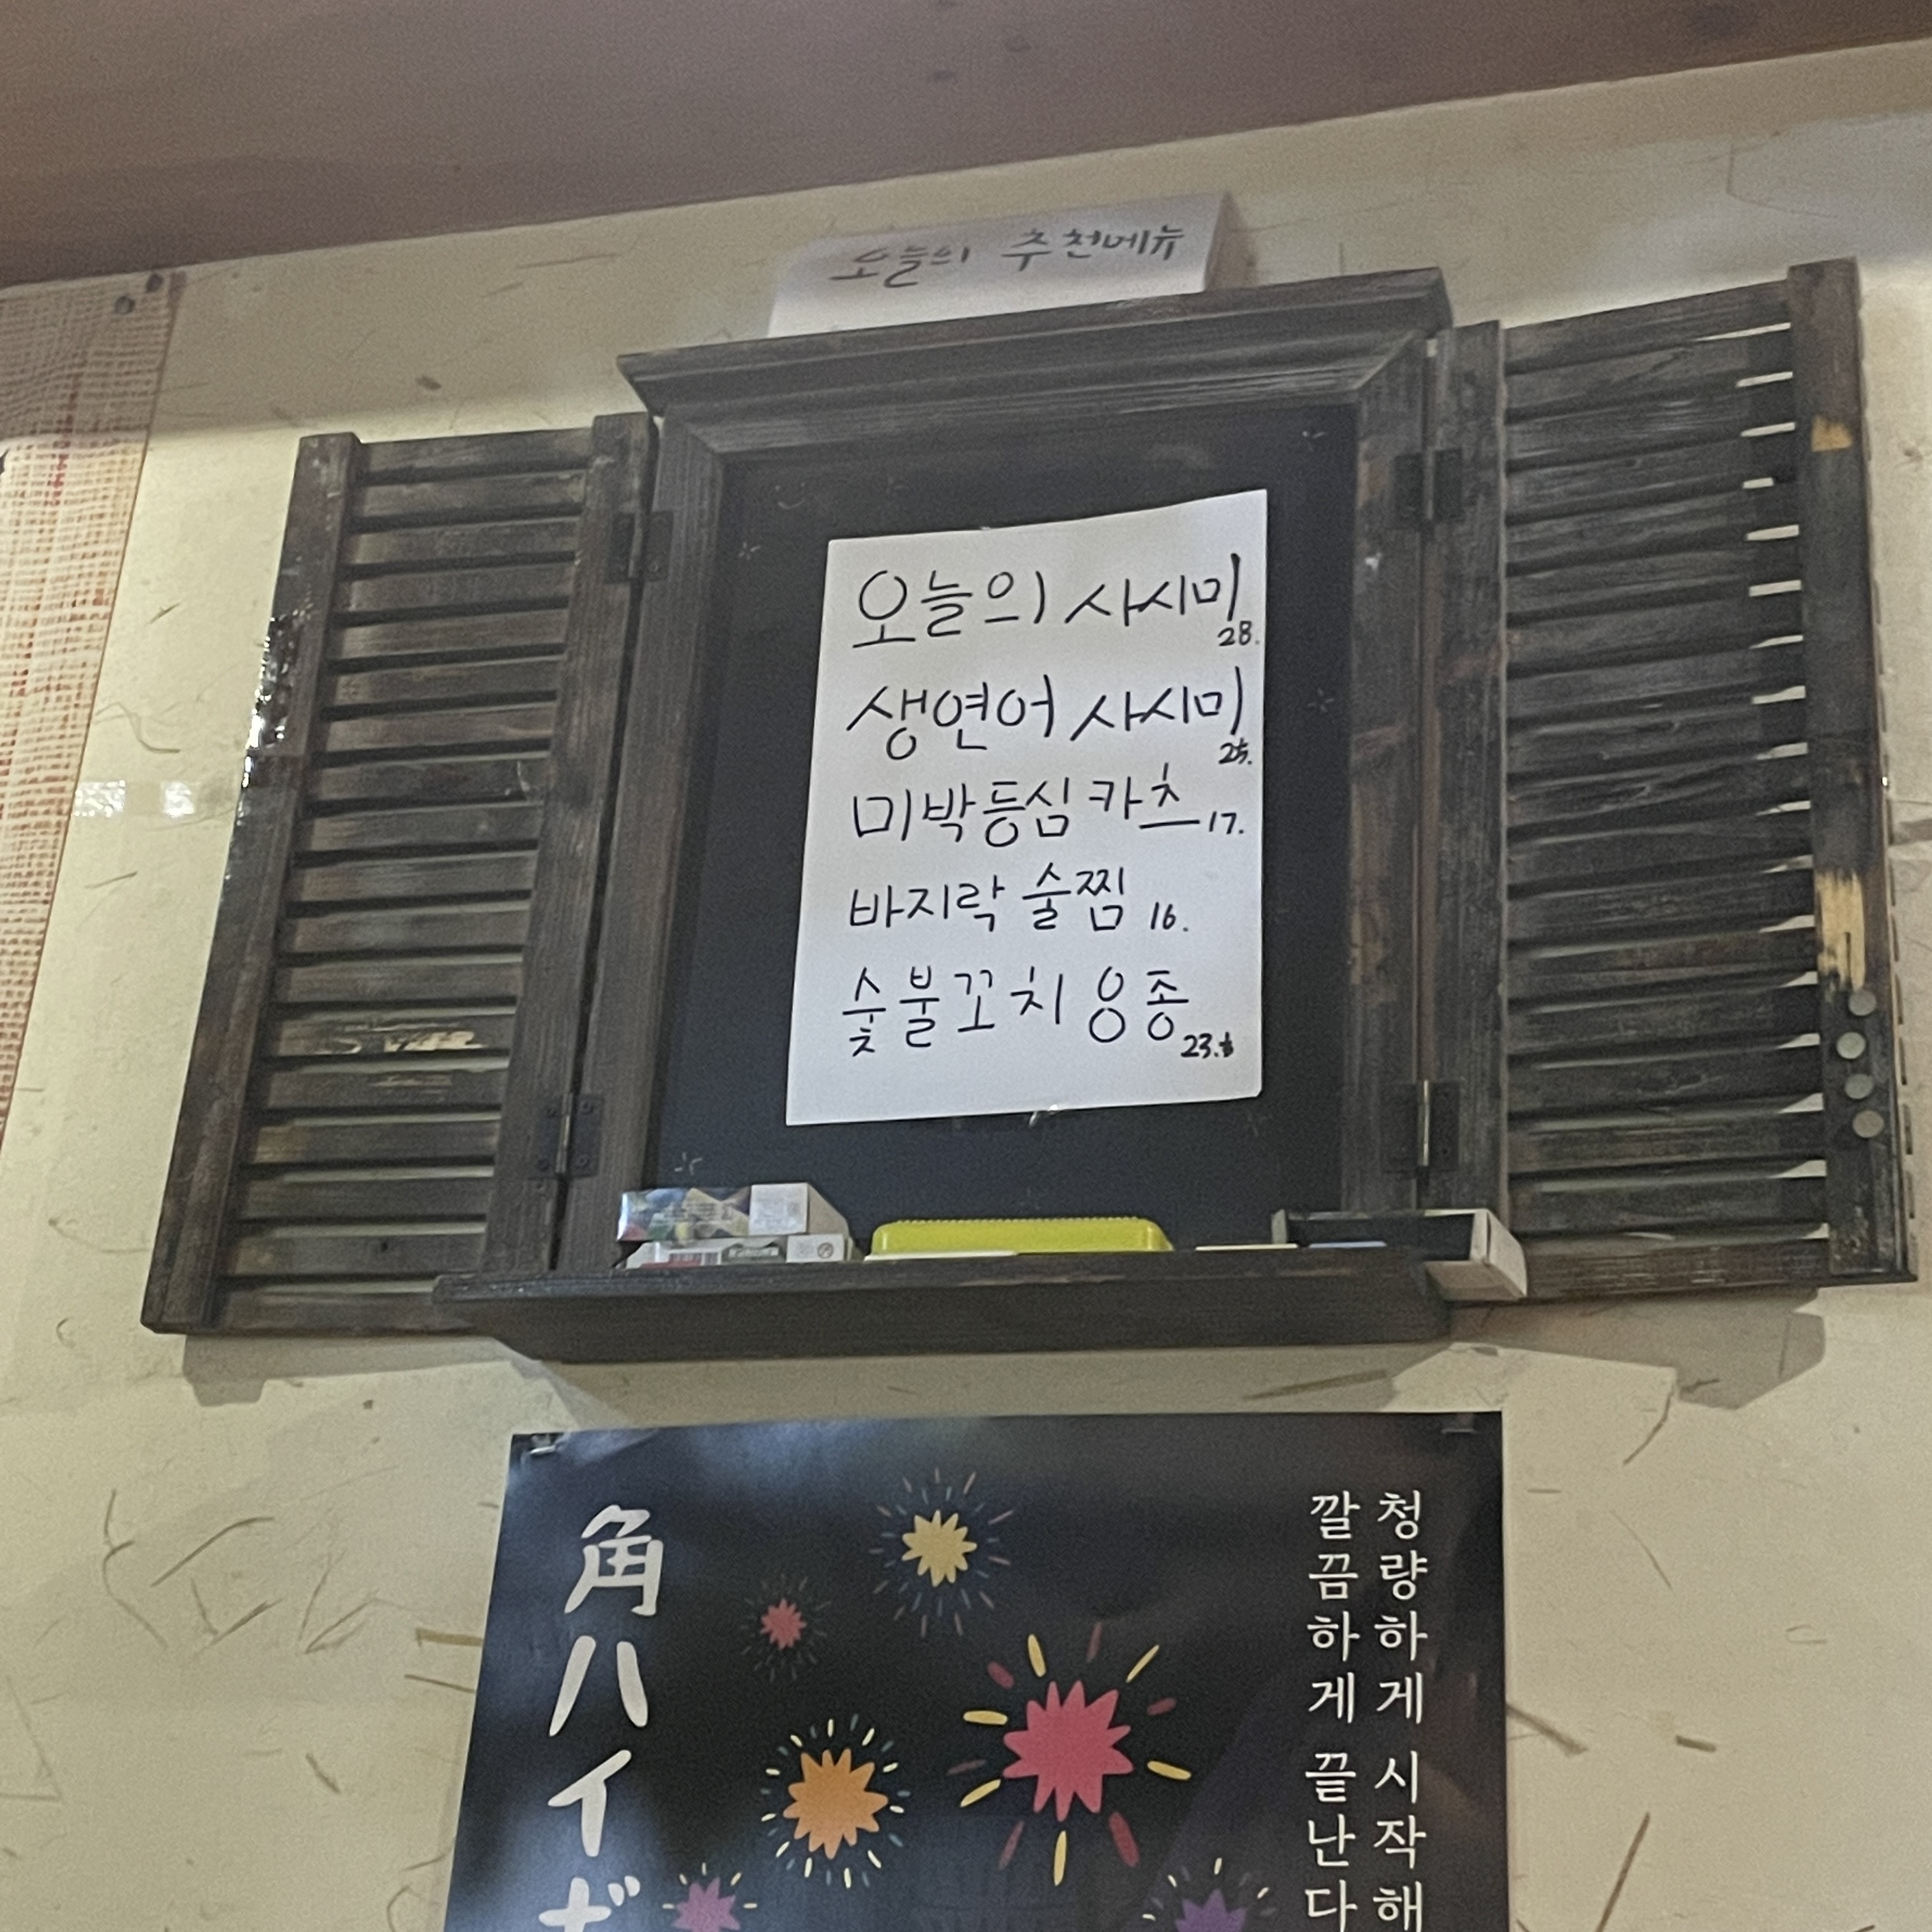 오늘의 추천메뉴
오늘의 사시미
28.
생연어 사시미
25.
미박등심 카츠 17.
바지락 술찜 16.
숯불꼬치 용종
23.
角ハイボ
청량하게 시작해
깔끔하게 끝난다